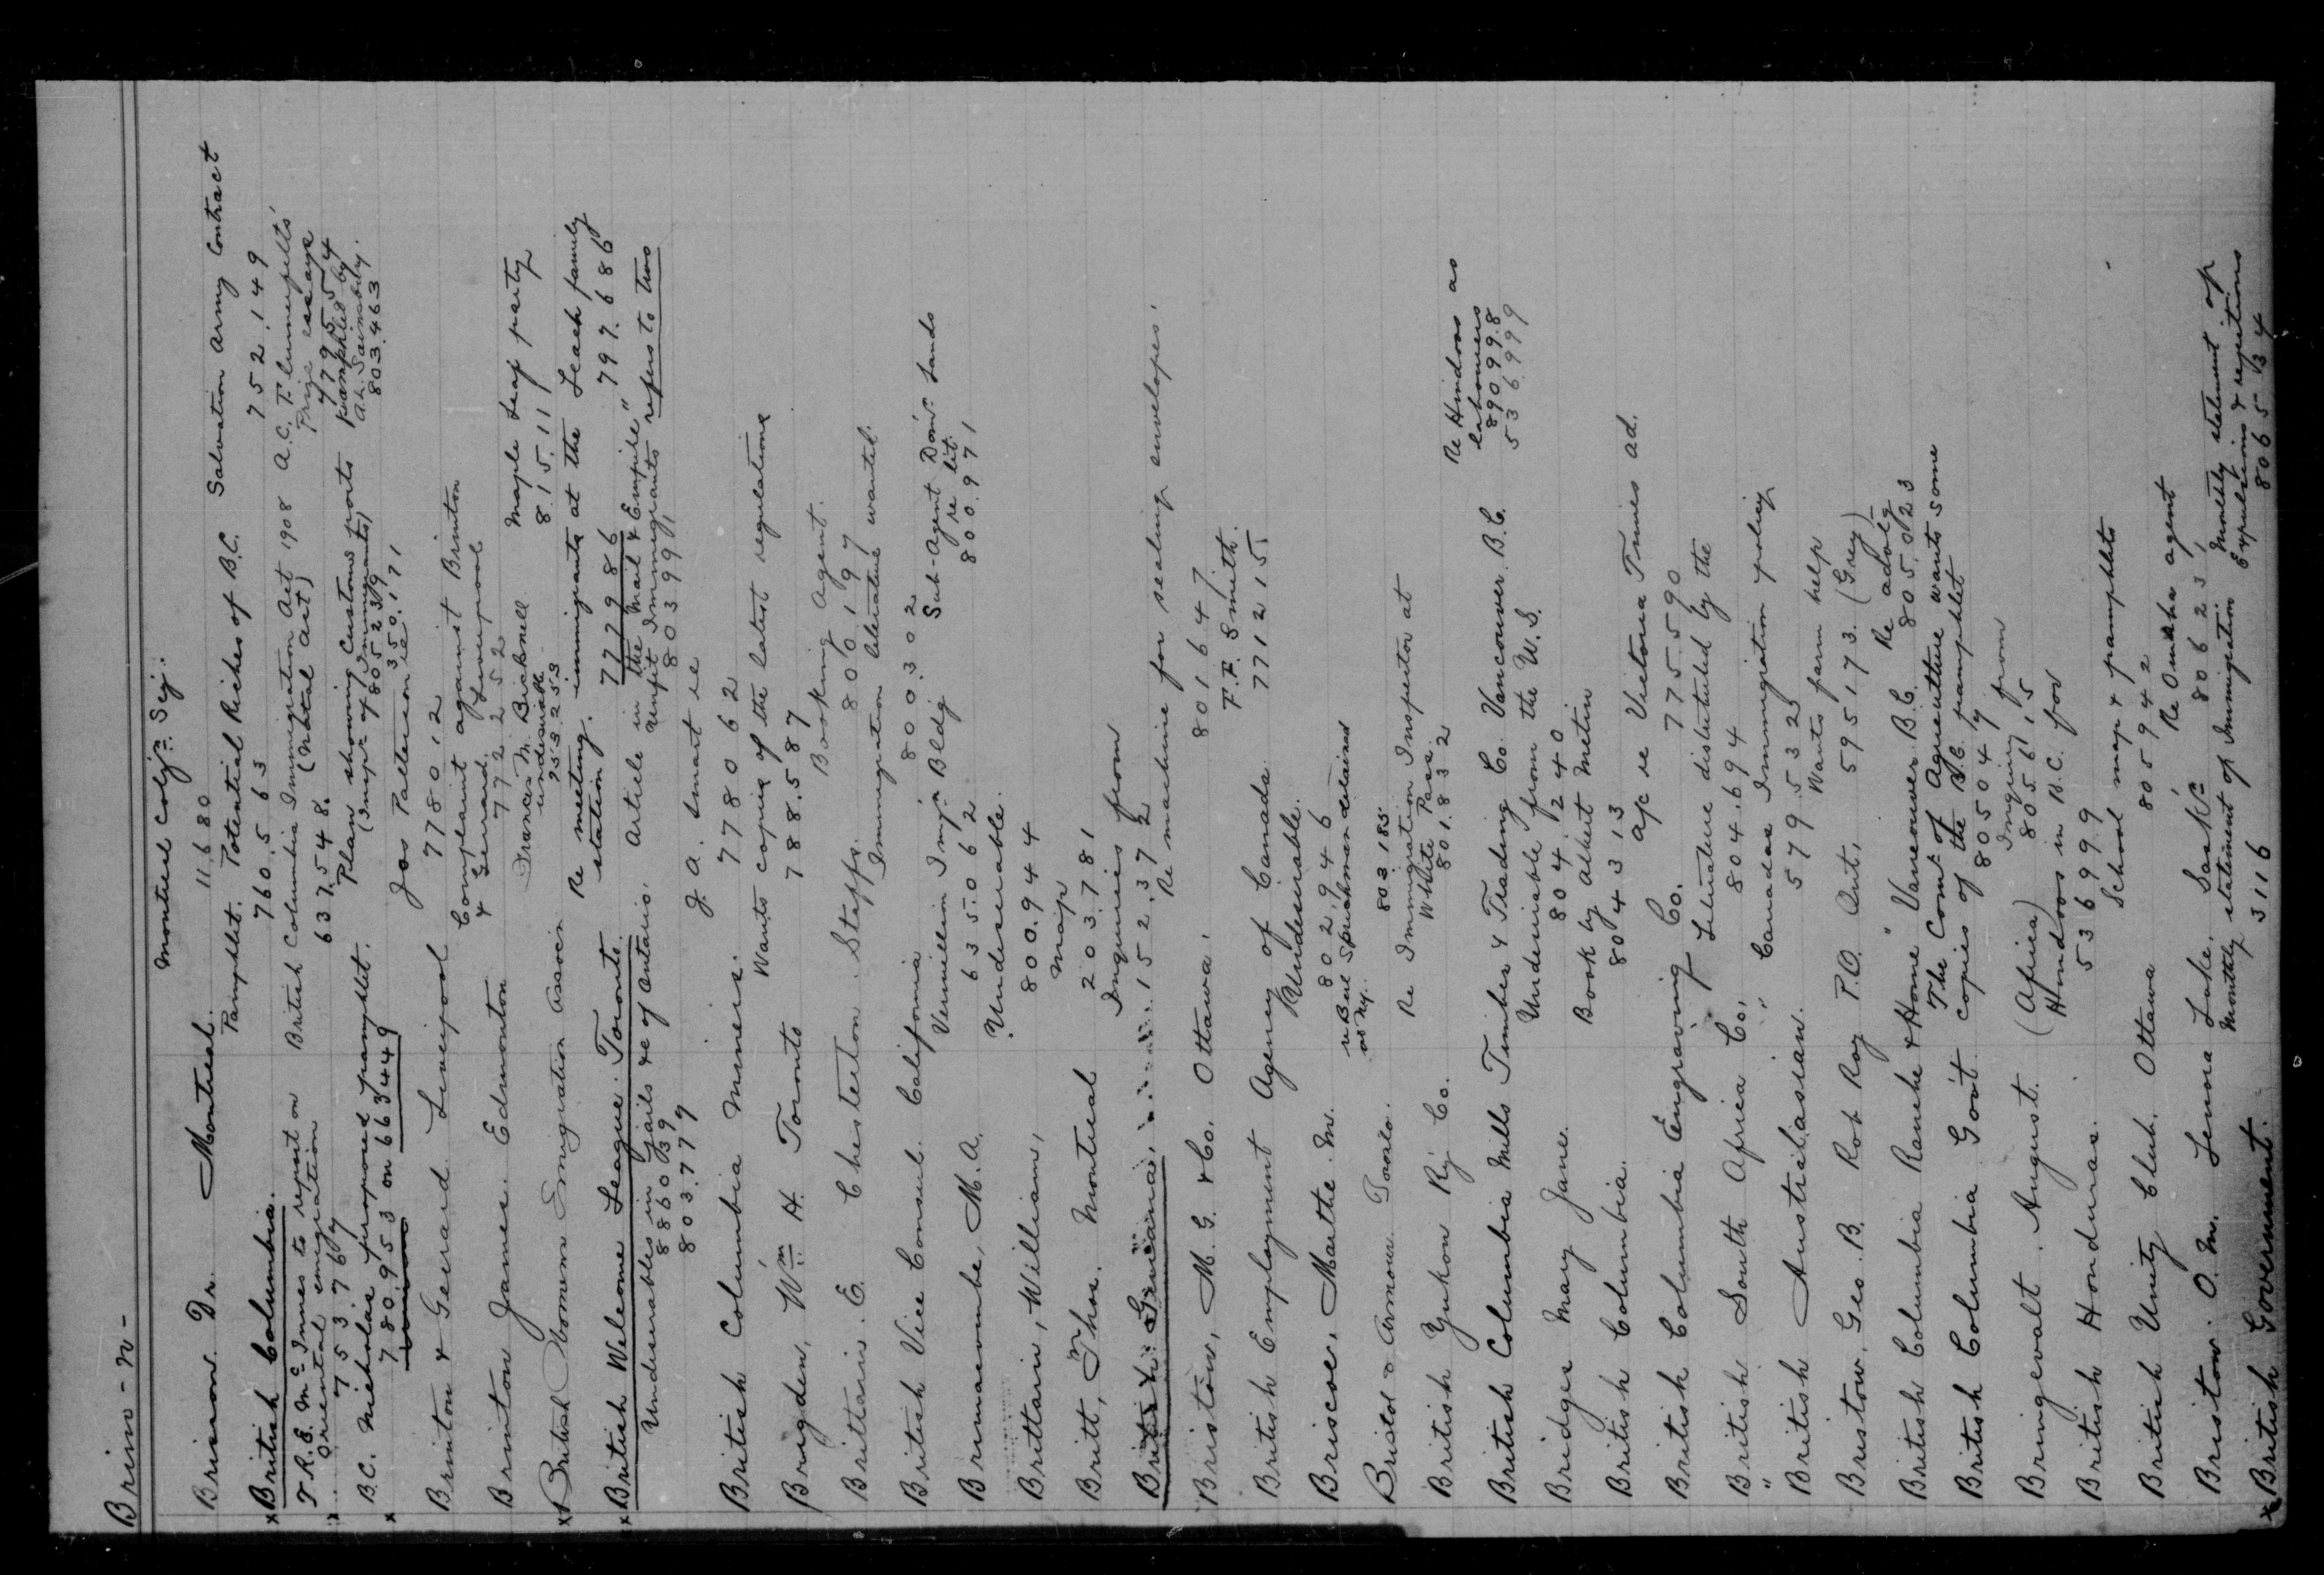 Brimo - W -
Brisson. Dr. Montreal. Montreal Coln. Scy.
11680
x British Columbia. Pamphlet. Potential Riches of B.C. Salvation Army Contract
760.563 752.149
T.R.E. McInnes to report on Oriental emigration British Columbia Immigration Act 1908 A.C. Flumerfelts'
753767 637.548. (Natal act) Prize essays
B.C. Nicholas proposed pamphlet. Plan showing Customs ports pamphlet by
780.953 on 663449 (Insp. of Immigrants) 805239 A.L. Sainsbury.
803.463
Jos Patterson re 350.171
Brinton & Gerrard Liverpool 778012
Brinton James. Edmonton Complaint against Brinton & Gerrard. Liverpool
772252
x British Women Emigration Assocn Frances M. Bicknell undesirable Maple Leaf party
753.253 8.15.111
x British Welcome League. Toronto. Re meeting. immigrants at the station. Leach family
777986 797.686
Undesirables in Gaols &c of Ontario. Article in the "Mail & Empire" refers to two unfit Immigrants
886039 803999,
803.779
J.A. Smart re
British Columbia Miners. 778062
Brigden, Wm H. Toronto Wants copies of the latest regulations
788.587
Brittain. E. Chesterton. Staffs. Booking Agent.
800197
British Vice Consul. California Immigration literature wanted.
800.302
Brumacombe, M.A. Vermillion Imp. Bldg Sub-Agent Dom. Lands
635.062 re lit.
800.971
Brittain, William, Undesirable.
800.944
Britt, Thos. Montreal Map
203.781
British Guiana, Inquiries from
152.372
Bristow, M.G. & Co. Ottawa, Re machine for sealing envelopes.
801647
British Employment Agency of Canada F.F. Smith.
771215
Briscoe, Marthe. M. Undesirable.
802946
Bristol & Armour Toronto.
803185
British Yukon Ry Co. Re Immigration Inspector at White Pass.
801.832
British Columbia Mills Timber & Trading Co. Vancouver. B.C. Re Hindoos as labourers
890998
536999
Bridges Mary Jane. Undesirable from the U.S.
804.1240
British Columbia. Book by Albert Metin
804313
British Columbia Engraving Co. a/c re Victoria Times ad.
775590
British South Africa Co, Literature distributed by the
804.694
" British Australasian. "Canadas Immigration policy
579.532
Bristow, Geo. B. Rob Roy P.O. Ont, Wants farm help
595173. (Grey)
British Columbia Ranche & Home" Vancouver B.C. Re advtg
805.023
British Columbia Govt The Comr of Agriculture wants some copies of the B.C. pamphlet
80504
Bringewalt. August. (Africa) Inquiry from
80561.5
British Honduras. Hindoos in B.C. for
536999
British Unity Club. Ottawa School map & pamphlets
805942
Bristow. O.M. Lenora Lake, Sask. Re Omaha agent
80623,
x British Government. Monthly statement of Immigration Monthly statement of Expulsions & rejections
3116 806534